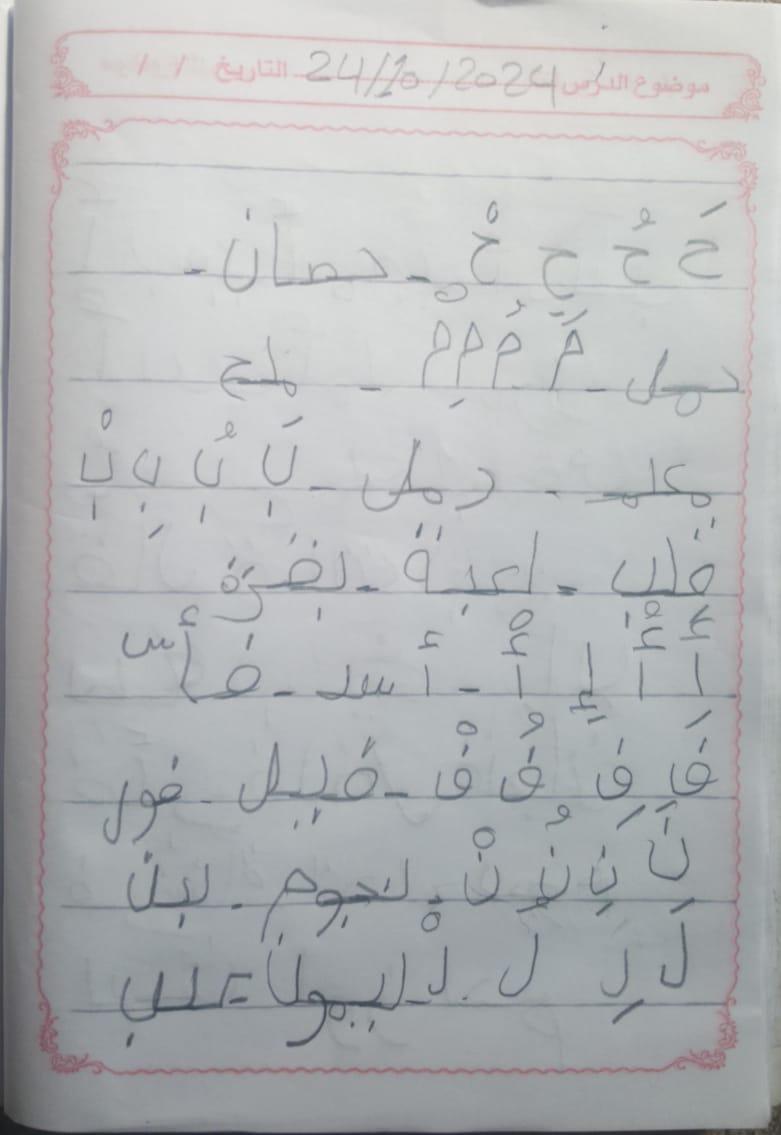 موضوع الدرس 24/10/2024 التاريخ / /
حَ حُ حِ حْ - حصان -
حمل - مَ مُ مِ مْ - ملح
معلم - رمل - بَ بُ بِ بْ
قلب - لعبة - بقرة
أَ أُ إِ أْ - أسد - فأس
فَ فِ فُ فْ - فيل - فول
نَ نِ نُ نْ - نجوم - لبن
لَ لِ لُ لْ - ليمون - علب